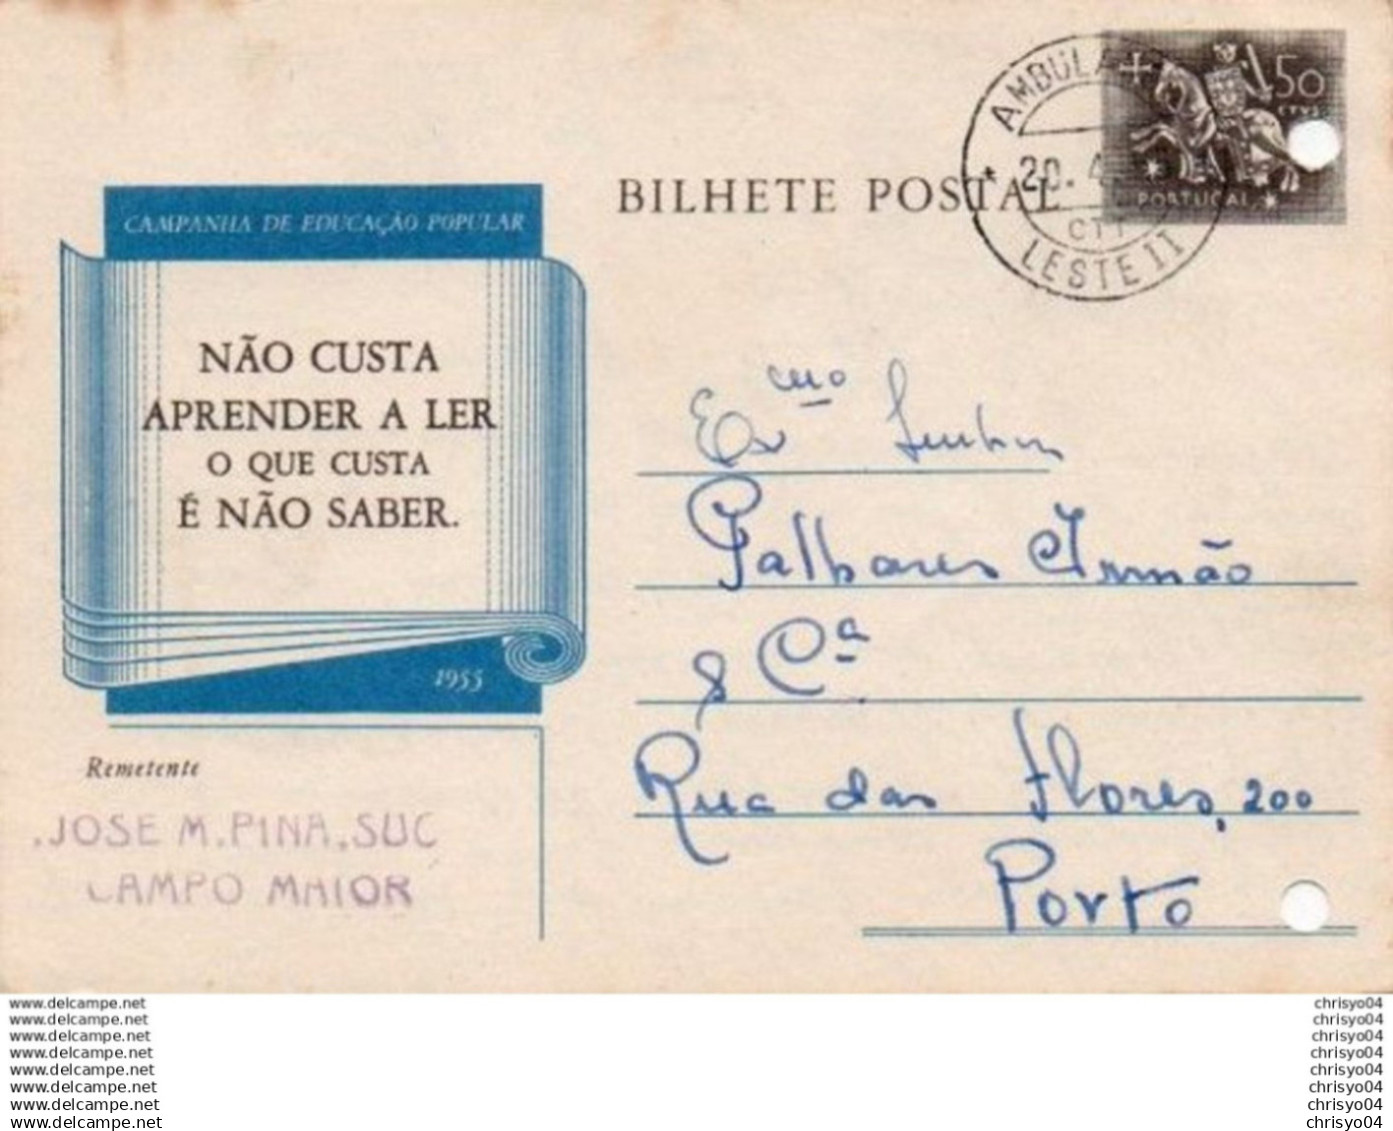 BILHETE POSTAL
20. 4
CTT
LESTE II
50
CTVS
PORTUGAL
CAMPANHA DE EDUCAÇÃO POPULAR
NÃO CUSTA
APRENDER A LER
O QUE CUSTA
É NÃO SABER.
1955
Remetente
JOSE M. PINA, SUC
CAMPO MAIOR
Exmo Senhor
Palhares Irmão
& Cª
Rua das Flores, 200
Porto
www.delcampe.net
www.delcampe.net
www.delcampe.net
www.delcampe.net
www.delcampe.net
www.delcampe.net
www.delcampe.net
www.delcampe.net
chrisyo04
chrisyo04
chrisyo04
chrisyo04
chrisyo04
chrisyo04
chrisyo04
chrisyo04